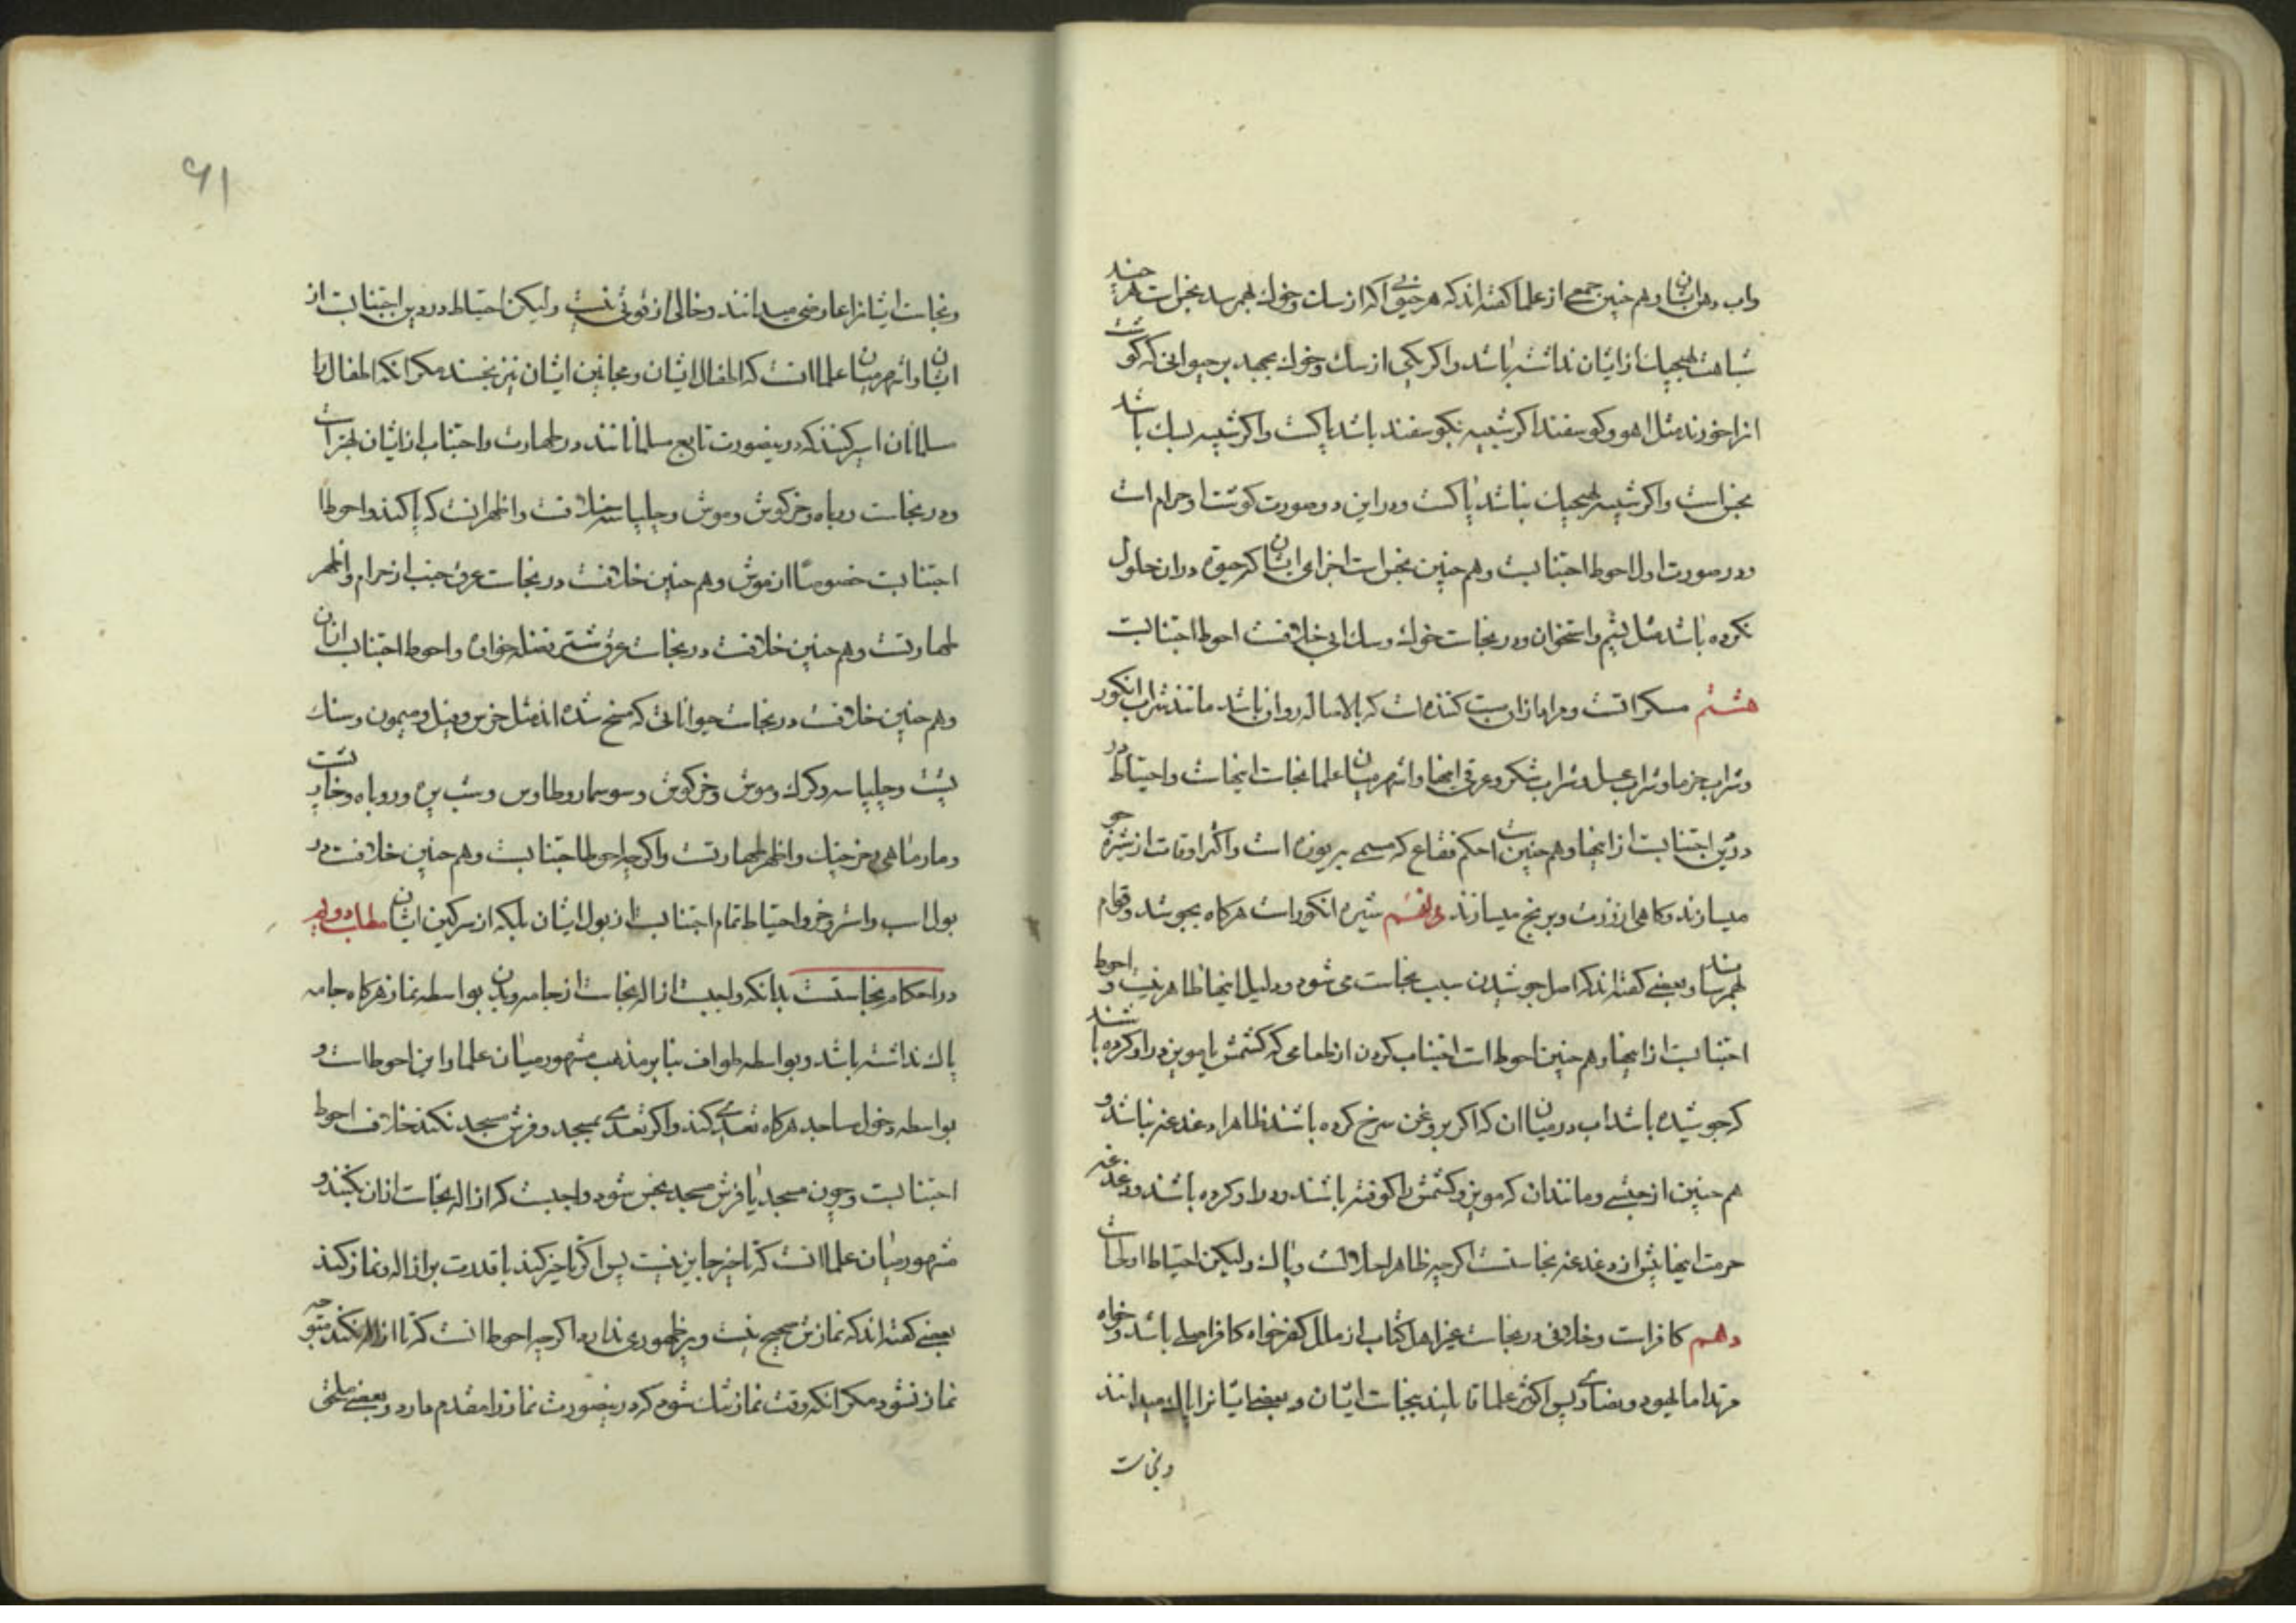 واب دهان ایشان و هم چنین جمعی از علما گفته‌اند که هر حیوانی را که از سک و خوک بهم رسد نجس است هر چند
شباهت بهیچیک از ایشان نداشته باشد و اکر یکی از سک و خوک بجهد بر حیوانی که کوشت
انرا خورند مثل اهو و کوسفند اکر شبیه بکوسفند باشد پاکست و اکر شبیه بسک باشد
نجس است و اکر شبیه بهیچیک نباشد پاکست و در این دو صورت کوشت او حرام است
و در صورت اول احوط اجتنابست و هم چنین نجس است اجزای ایشان که حیوة در ان حلول
نکرده باشد مثل پشم و استخوان و در نجاست خوک و سک ابی خلافست احوط اجتنابست
هشتم مسکراتست و مراد از ان مست کننده است که بالاصاله روان باشد مانند شراب انکور
و شراب خرما و شراب عسل و شراب شکر و عرق اینها و اشهر میان علما نجاست اینهاست و احتیاط در
دین اجتنابست از اینها و هم چنین است حکم فقاع که مسمی ببوزه است و اکثر اوقات از شیره جو
میسازند و کاهی از زرت و برنج میسازند نهم شیره انکور است هرکاه بجوشد و قوام
بهم رساند و بعضی گفته‌اند که اصل جوشیدن سبب نجاست می شود و دلیل اینها ظاهر نیست و احوط
اجتنابست از اینها و هم چنین احوط است اجتناب کردن از طعامی که کشمش یا مویز در او کرده باشند
که جوشیده باشد اب در میان ان که اکر بروغن سرخ کرده باشند ظاهرا دغدغه نباشد و
هم چنین از حبشی و مانند ان که مویز و کشمش را کوفته باشند و در او کرده باشند و دغدغه
حرمت اینها بیش از دغدغه نجاستست اکرچه ظاهرا حلالست و پاک و لیکن احتیاط اولی است
دهم کافر است و خلافی در نجاست غیر اهل کتاب از ملل کفر خواه کافر اصلی باشد و خواه
مرتد اما یهود و نصاری پس اکثر علما قایلند بنجاست ایشان و بعضی ایشانرا پاک میدانند
و نجاست
۶۱
و نجاست ایشانرا عارضی میدانند و خالی از قوتی نیست و لیکن احتیاط در دین اجتنابست از
ایشان و اشهر میان علما انست که اطفال ایشان و مجانین ایشان نیز نجسند مکر انکه اطفال را
مسلمانان اسیر کنند که درینصورت تابع مسلمانانند در طهارت و اجتناب از ایشان بهتر است
و در نجاست روباه و خرکوش و موش و چلپاسه خلافست و اظهر انست که پاکند و احوط
اجتنابست خصوصا از موش و هم چنین خلافست در نجاست عرق جنب از حرام و اظهر
طهارتست و هم چنین خلافست در نجاست عرق شتر فضله خوار و احوط اجتناب از انست
و هم چنین خلافست در نجاست حیواناتی که مسخ شده‌اند مثل خرس و فیل و میمون و سنک
پشت و چلپاسه و کرک و موش و خرکوش و سوسمار و طاوس و شب پره و روباه و خارپشت
و مارماهی و خرچنک و اظهر طهارتست و اکرچه احوط اجتنابست و هم چنین خلافست در
بول اسب و استر و خر و احتیاط تمام اجتنابست از بول ایشان بلکه از سرکین ایشان مطلب دویم
در احکام نجاستست بدانکه واجبست ازاله نجاست از جامه و بدن بواسطه نماز هرکاه جامه
پاک نداشته باشد و بواسطه طواف بنابر مذهب مشهور میان علما و این احوط است و
بواسطه دخول مساجد هرکاه تعدی کند و اکر تعدی بمسجد و فرش مسجد نکند خلافست احوط
اجتنابست و چون مسجد یا فرش مسجد نجس شود واجبست که ازاله نجاست از ان بکنند و
مشهور میان علما انست که تاخیر جایز نیست پس اکر تاخیر کند با قدرت بر ازاله و نماز کند
بعضی گفته‌اند که نمازش صحیح نیست و این ظهوری ندارد اکرچه احوط انست که تا ازاله نکند متوجه
نماز نشود مکر انکه وقت نماز تنک شود که درینصورت نماز را مقدم دارد و بعضی ملحق